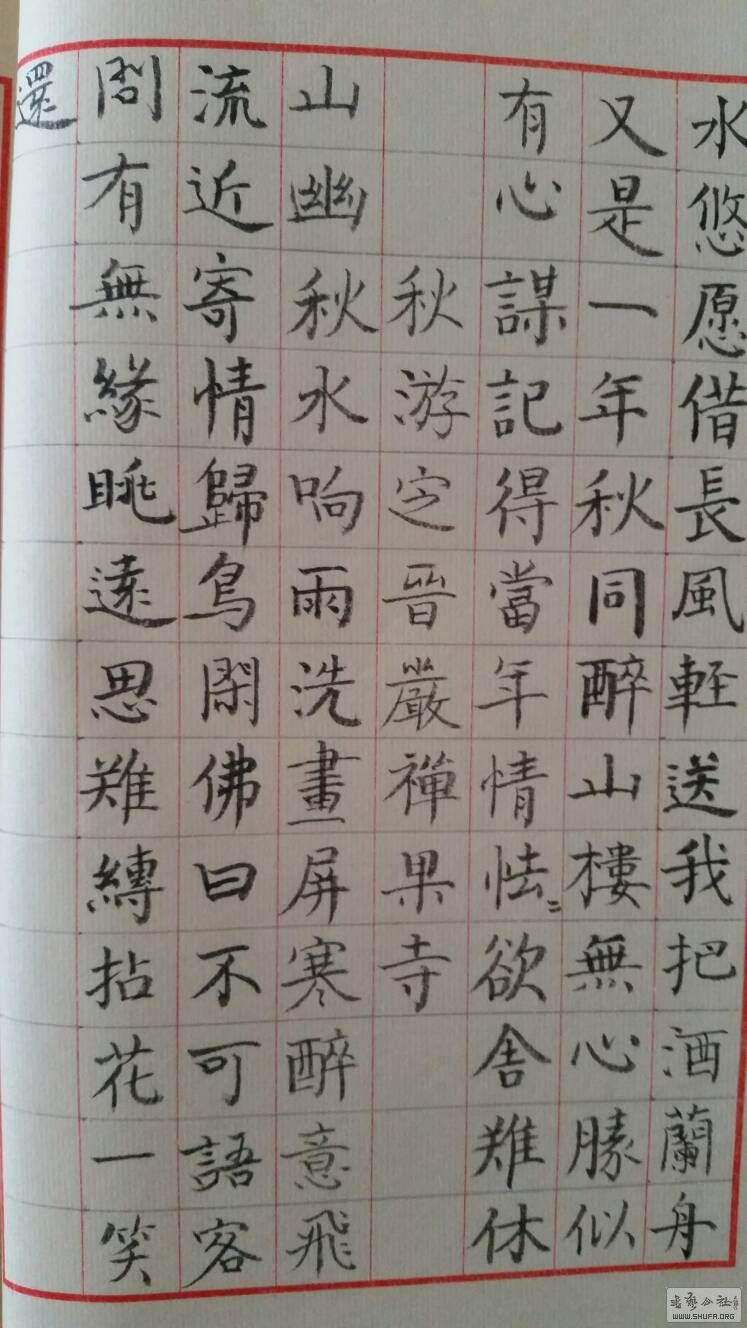 水悠愿借長風輕送我把酒蘭舟
又是一年秋同醉山樓無心勝似
有心謀記得當年情怯〻欲舍難休
秋游定晉嚴禪果寺
山幽秋水响雨洗畫屏寒醉意飛
流近寄情歸鳥閑佛曰不可語客
問有無緣眺遠思難縛拈花一笑
還
WWW.SHUFA.ORG